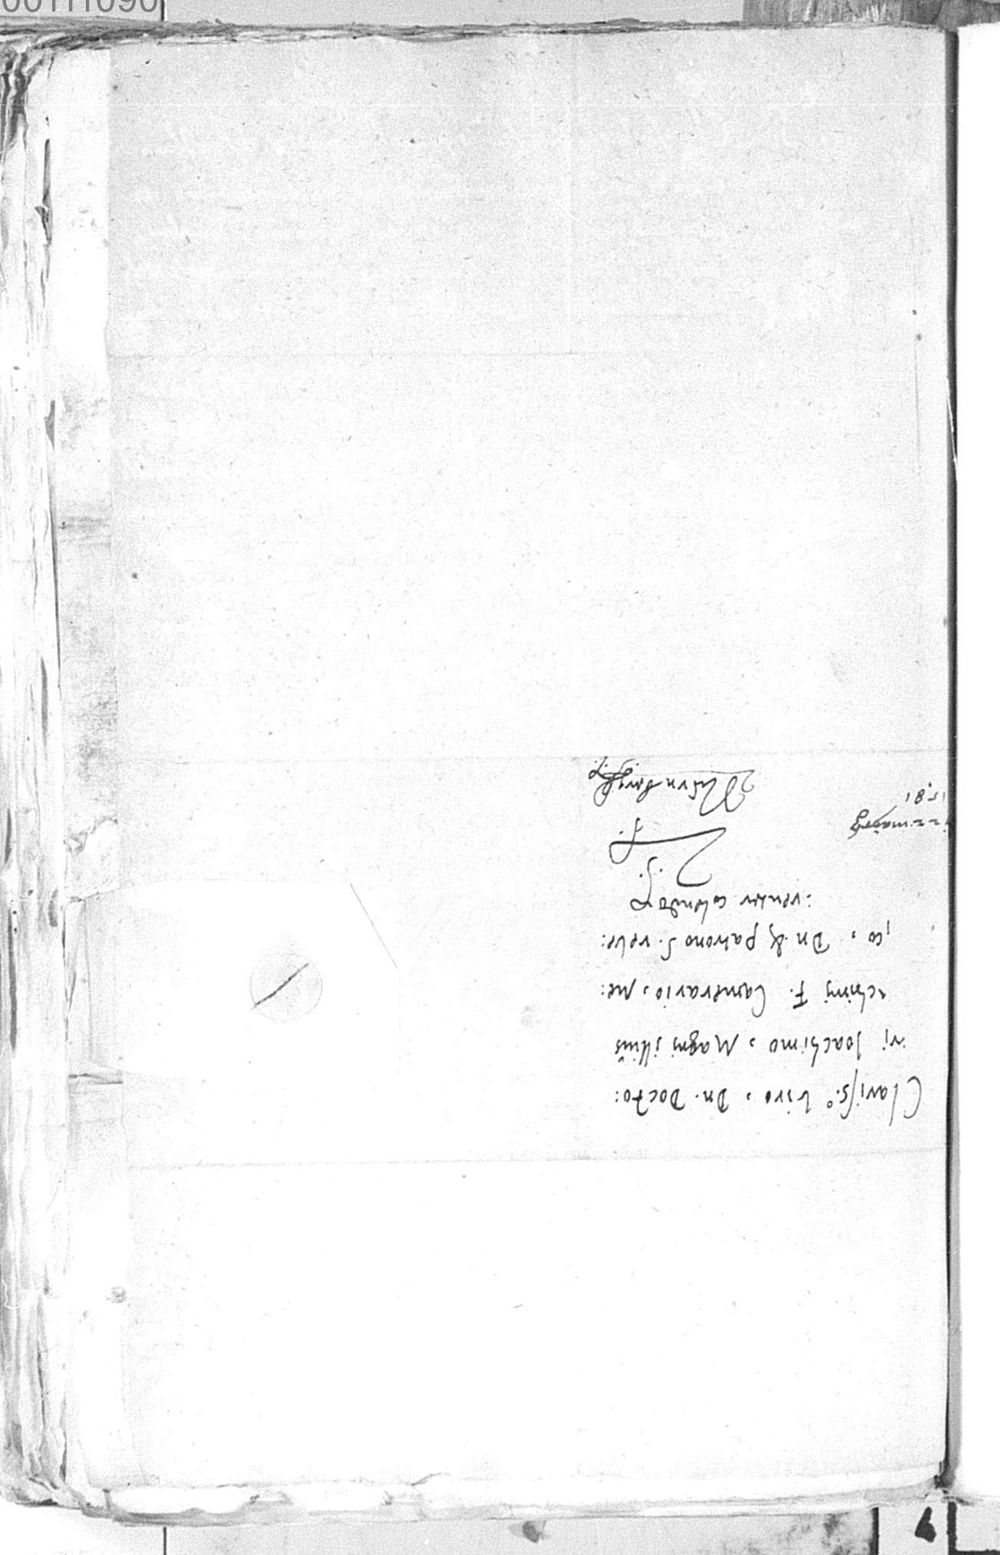 00111090
Clariss.º Viro, Dn. Docto:
ri Joachimo, Magni illius
achimi F. Camerario, me:
co, Dn. & patrono S. reve:
renter colendo
Nürnberg
1581